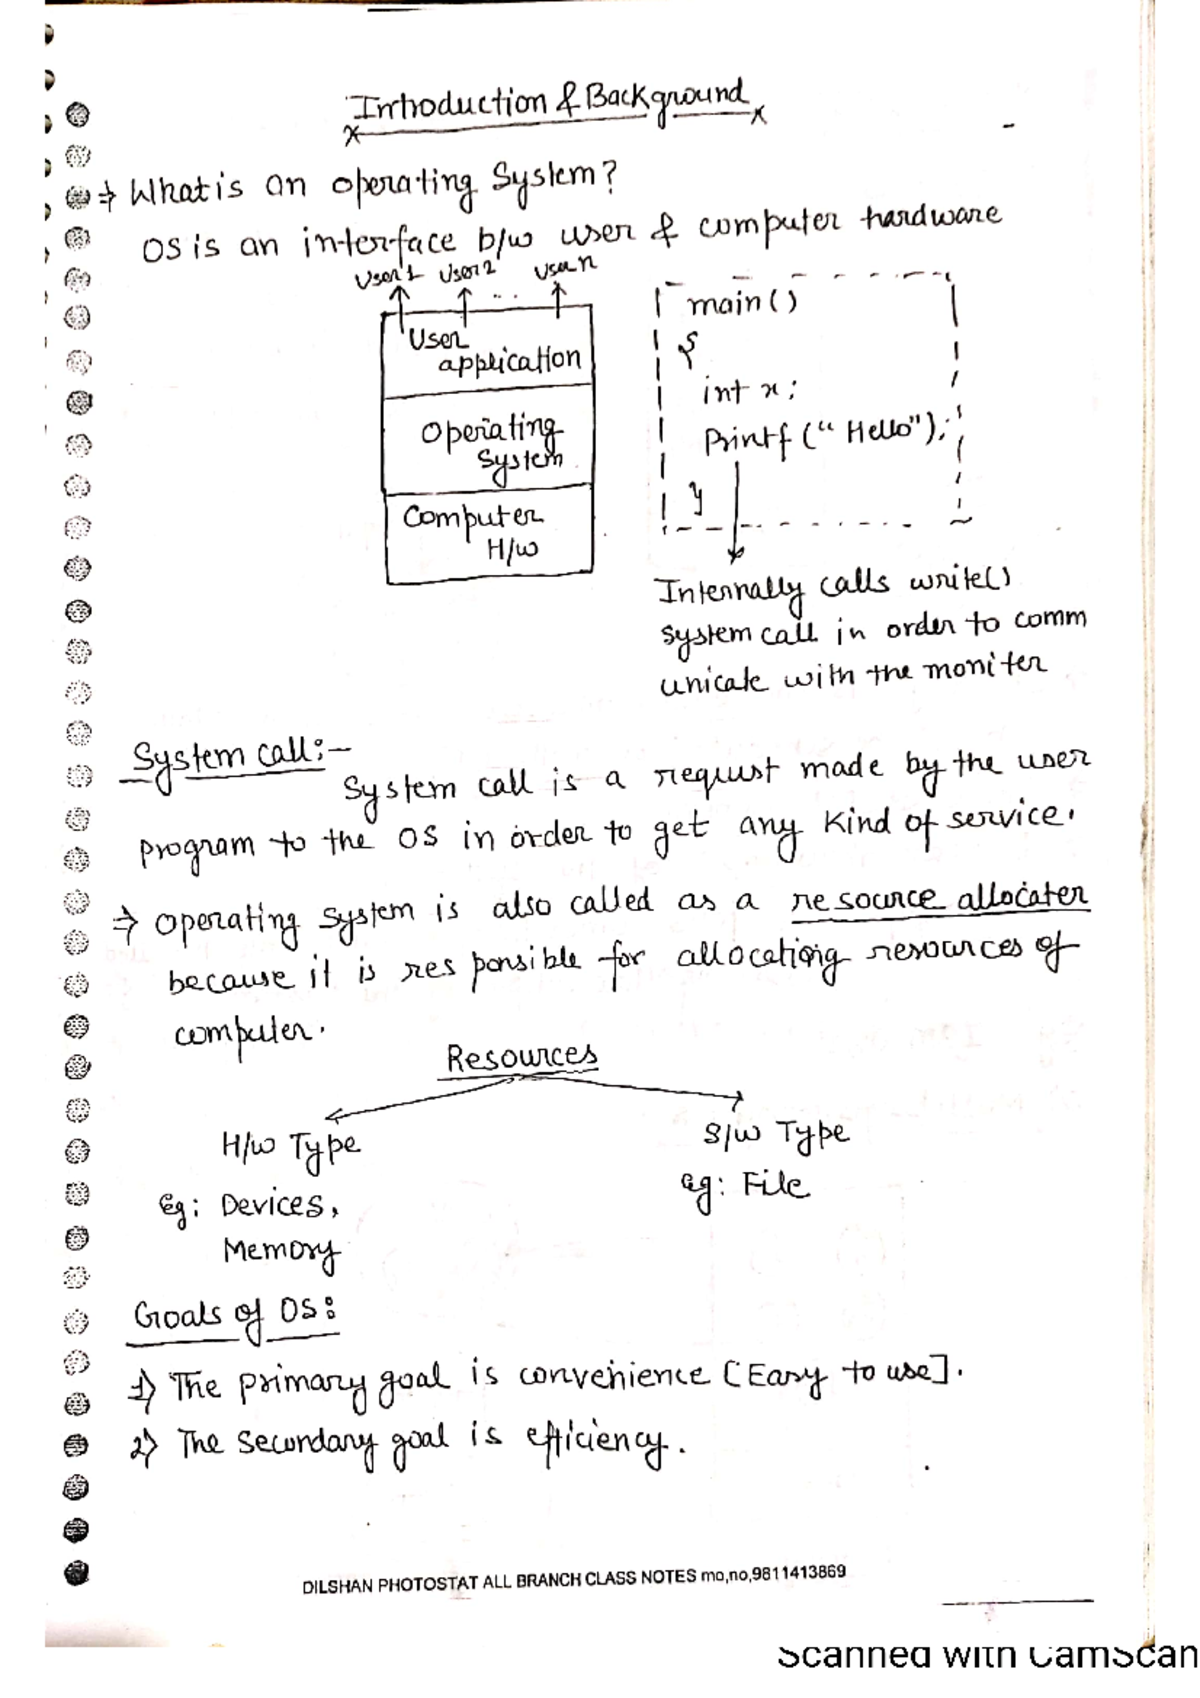 Introduction & Background
⇒ What is an operating System?
OS is an interface b/w user & computer hardware
User1 User2 .. User n
User
application
Operating
System
Computer
H/w
main()
{
int x;
Printf ("Hello");
}
Internally calls write()
system call in order to comm
unicate with the moniter
System call:-
System call is a requst made by the user
program to the OS in order to get any Kind of service.
⇒ Operating system is also called as a resource allocater
because it is responsible for allocationg resources of
computer.
Resources
H/w Type
S/w Type
Eg: Devices,
Memory
eg: File
Goals of OS:
1) The primary goal is convenience [Easy to use].
2) The secondary goal is efficiency.
DILSHAN PHOTOSTAT ALL BRANCH CLASS NOTES mo,no,9811413869
Scanned with CamScan